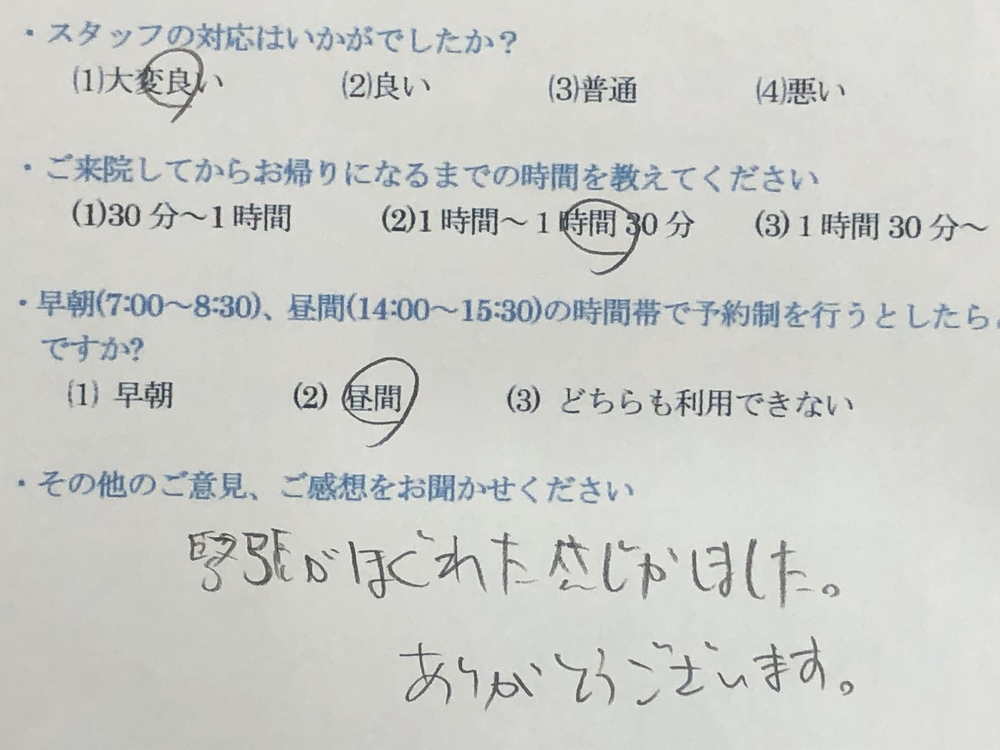 ・スタッフの対応はいかがでしたか？
(1)大変良い (2)良い (3)普通 (4)悪い
・ご来院してからお帰りになるまでの時間を教えてください
(1)30分～1時間 (2)1時間～1時間30分 (3)1時間30分～
・早朝(7:00～8:30)、昼間(14:00～15:30)の時間帯で予約制を行うとしたら、
ですか?
(1) 早朝 (2) 昼間 (3) どちらも利用できない
・その他のご意見、ご感想をお聞かせください
緊張がほぐれた感じがしました。
ありがとうございます。